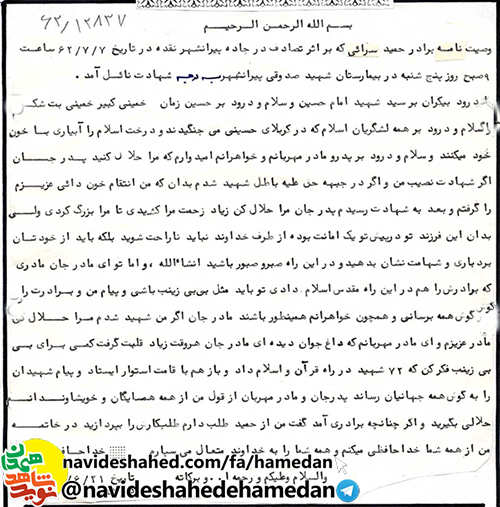 ۶۲/۱۲۸۲۷
بسم الله الرحمن الرحیم
وصیت نامه برادر حمید سرائی که بر اثر تصادف در جاده پیرانشهر نقده در تاریخ ۶۲/۷/۷ ساعت
۹ صبح روز پنج شنبه در بیمارستان شهید صدوقی پیرانشهر به درجه شهادت نائل آمد .
با درود بیکران بر سید شهید امام حسین و سلام و درود بر حسین زمان خمینی کبیر خمینی بت شکن
و سلام و درود بر همه لشگریان اسلام که در کربلای حسینی می جنگیدند و درخت اسلام را آبیاری با خون
خود میکنند و سلام و درود بر پدر و مادر مهربانم و خواهرانم امیدوارم که مرا حلال کنید پدر جان
اگر شهادت نصیب من و اگر در جبهه حق علیه باطل شهید شدم بدان که من انتقام خون دائی عزیزم
را گرفتم و بعد به شهادت رسیدم پدر جان مرا حلال کن زیاد زحمت مرا کشیدی تا مرا بزرگ کردی ولی
بدان این فرزند تو در پیش تو یک امانت بوده از طرف خداوند نباید ناراحت شوید بلکه باید از خودتان
بردباری و شهامت نشان بدهید و در این راه صبر و صبور باشید انشاءالله ، و اما تو ای مادر جان مادری
که برادرش را هم در این راه مقدس اسلام دادی تو باید مثل بی بی زینب باشی و پیام من و برادرت را
گوش همه برسانی و همچون خواهرانم همینطور باشند مادر جان اگر من شهید شدم مرا حلال کن
مادر عزیزم و ای مادر مهربانم که داغ جوان دیده ای مادر جان هر وقت زیاد قلبت گرفت کمی برای بی
بی زینب فکر کن که ۷۲ شهید در راه قرآن و اسلام داد و باز هم با قامت استوار ایستاد و پیام شهیدان
را به گوش همه جهانیان رساند پدر جان و مادر مهربان از قول من از همه همسایگان و خویشاوندانم
حلالی بگیرید و اگر چنانچه برادری آمد گفت من از حمید طلب دارم طلبکارش را بپردازید در خاتمه
من از همه شما خداحافظی میکنم و همه شما را به خداوند متعال می سپارم خداحافظ
والسلام وعلیکم و رحمه ا... و برکاته تاریخ ۶/۲۱
navideshahed.com/fa/hamedan
@navideshahedehamedan
نوید شاهد همدان